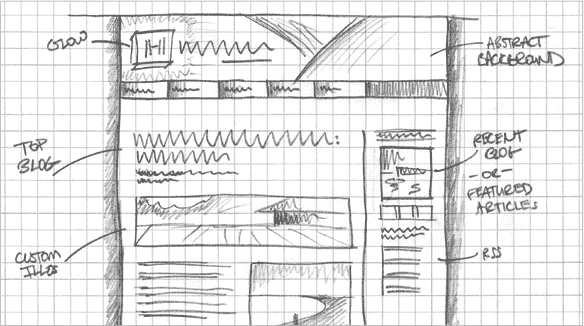 GLOW
ABSTRACT
BACKGROUND
TOP
BLOG
RECENT
BLOG
-OR-
FEATURED
ARTICLES
CUSTOM
ILLOS
RSS